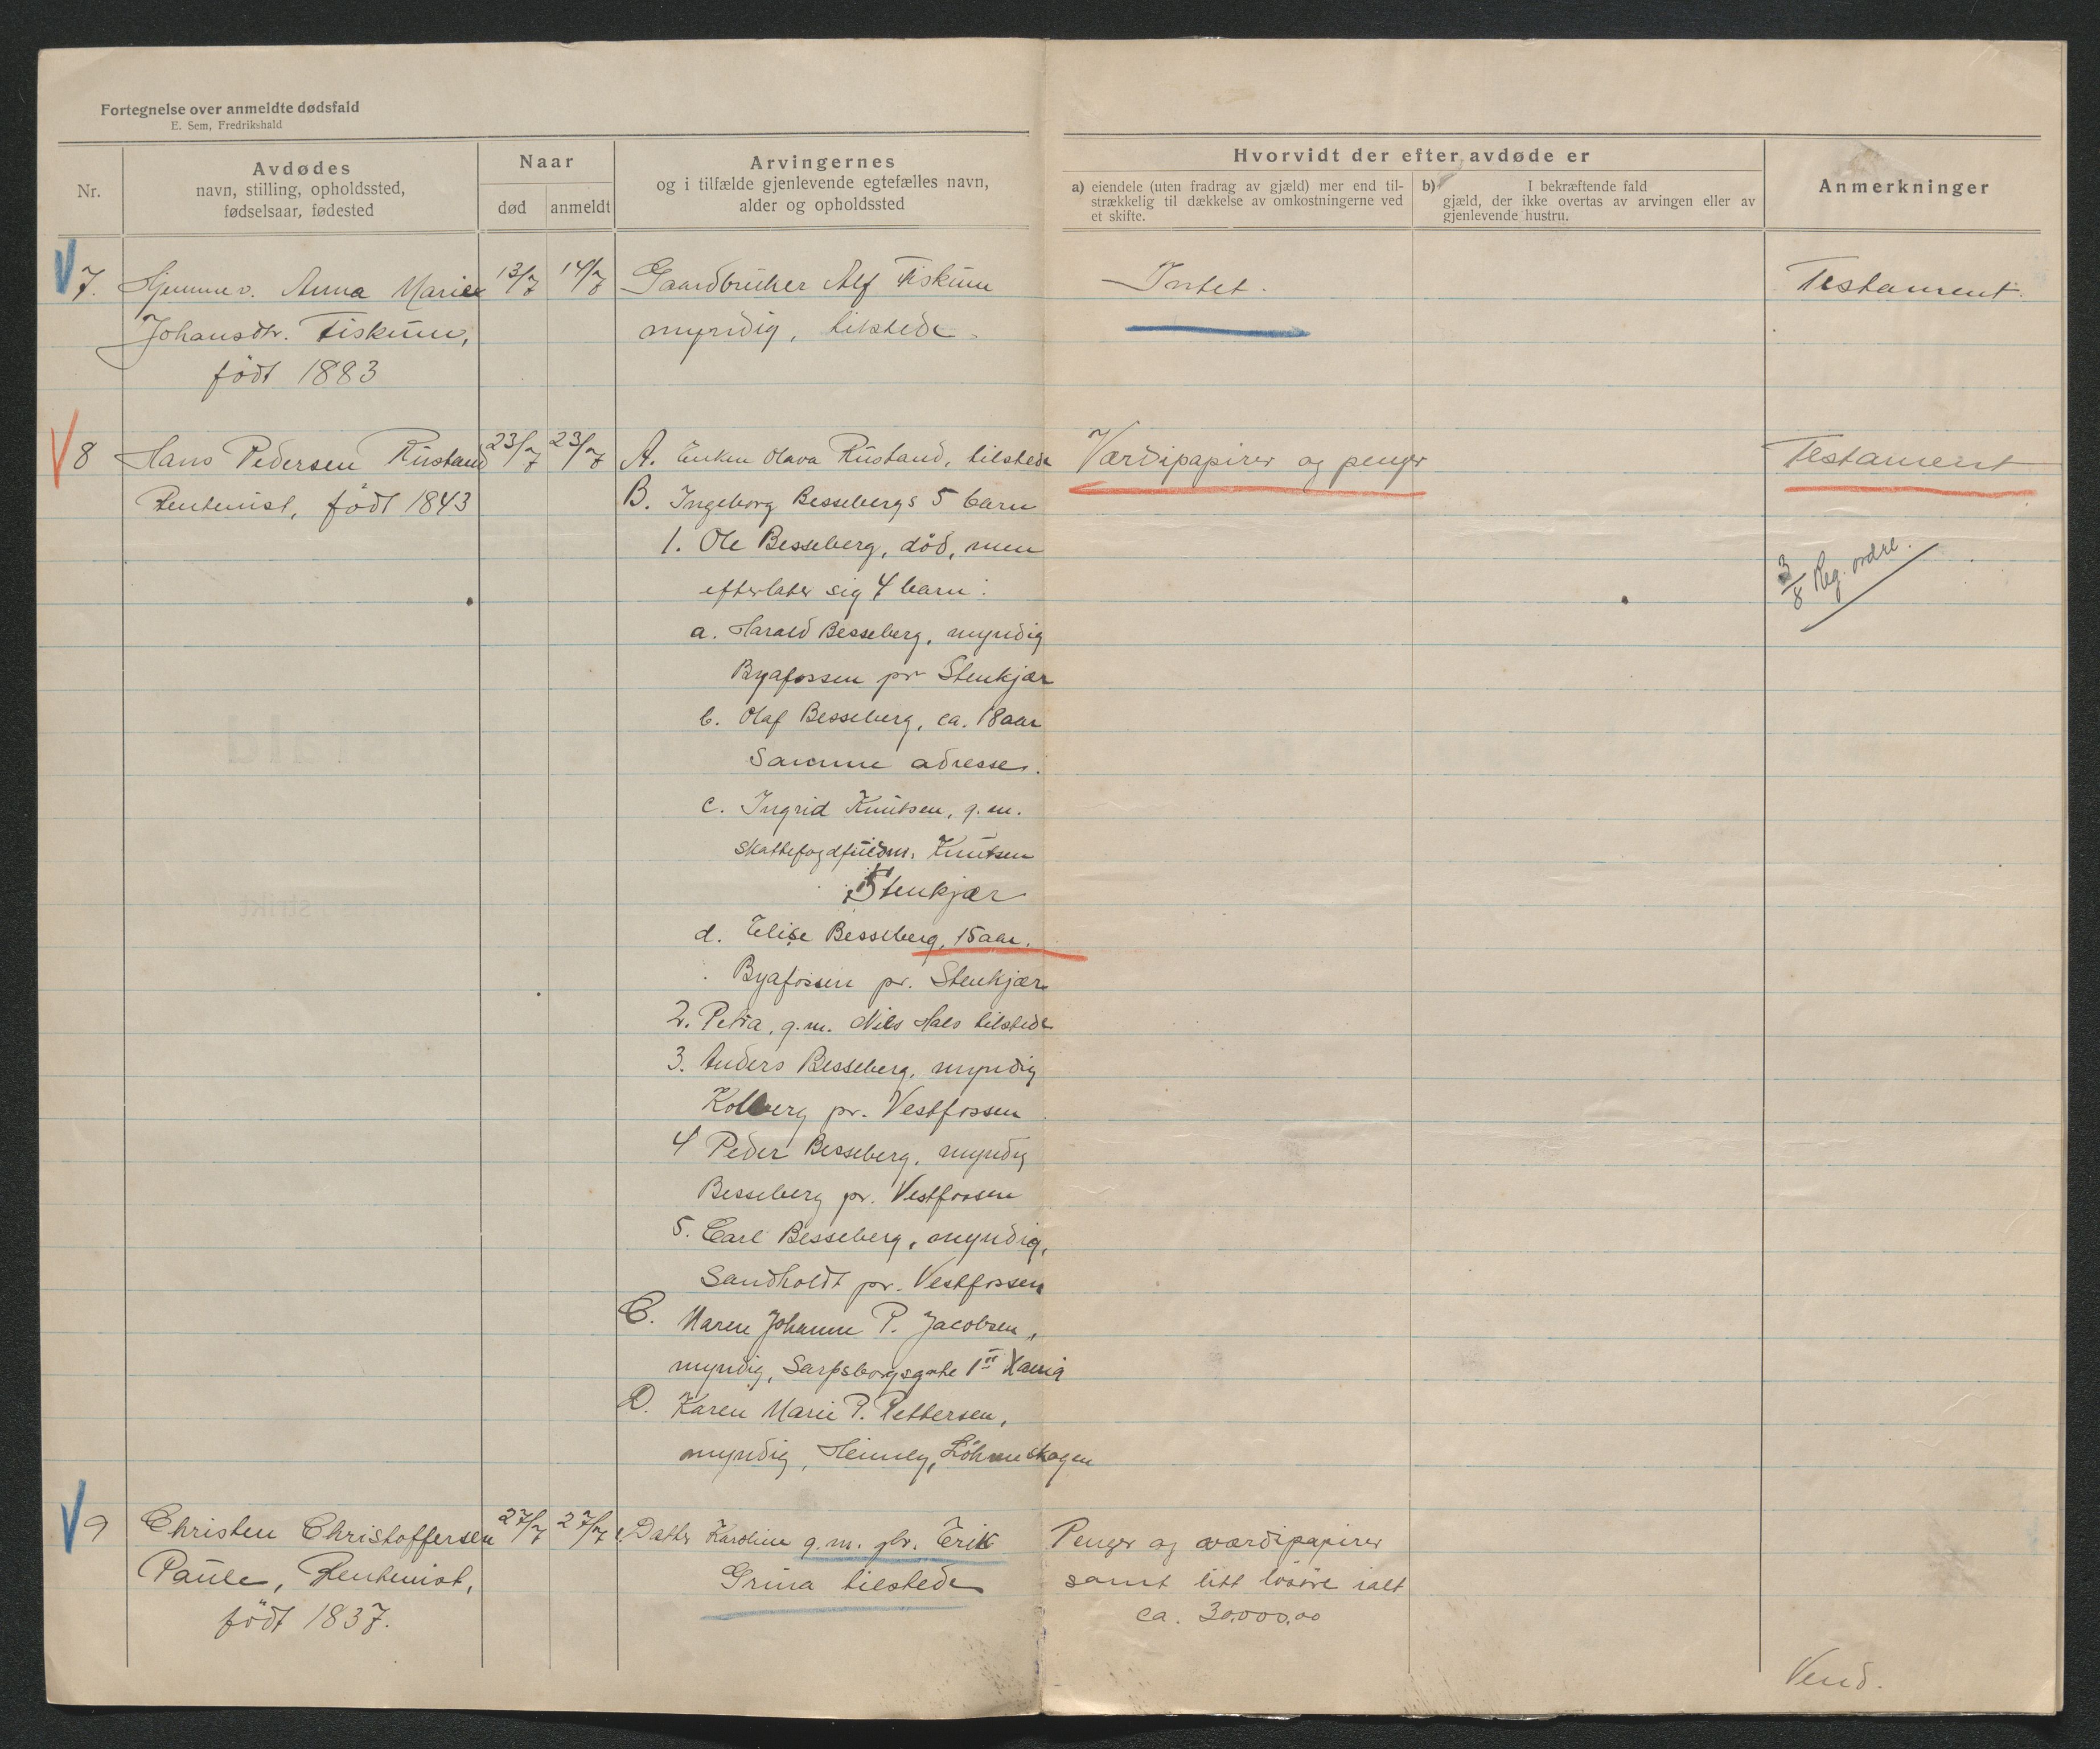 Fortegnelse over anmeldte dødsfald
E. Sem, Fredrikshald
Nr.
Avdødes
navn, stilling, opholdssted,
fødselsaar, fødested
Naar
død
anmeldt
Arvingernes
og i tilfælde gjenlevende egtefælles navn,
alder og opholdssted
Hvorvidt der efter avdøde er
a) eiendele (uten fradrag av gjæld) mer end til-
strækkelig til dækkelse av omkostningerne ved
et skifte.
b) I bekræftende fald
gjæld, der ikke overtas av arvingen eller av
gjenlevende hustru.
Anmerkninger
7. Hjemmev. Anna Marie 13/7 14/7 Gaardbruker Alf Fiskum Intet. Testament.
Johansdtr. Fiskum, myndig, tilstede.
født 1883
8 Hans Pedersen Rustand 23/7 23/7 A. Enken Olava Rustand, tilstede Værdipapirer og penger Testament
Rentenist, født 1843 B. Ingeborg Bessebergs 5 barn
1. Ole Besseberg, død, men
3/8 Reg. ordre.
efterlater sig 4 barn:
a. Harald Besseberg, myndig
Byafossen pr Stenkjær
b. Olaf Besseberg, ca. 18 aar
Samme adresse.
c. Ingrid Knutsen, g.m.
skattefogdfuldm. Knutsen
Stenkjær
d. Elise Besseberg, 15 aar.
Byafossen pr. Stenkjær
2. Petra, g.m. Nils Hals tilstede
3. Anders Besseberg, myndig
Kolberg pr. Vestfossen
4 Peder Besseberg, myndig
Besseberg pr. Vestfossen
5. Carl Besseberg, myndig,
Sandholdt pr. Vestfossen
C. Maren Johanne P. Jacobsen,
myndig, Sarpsborgsgate 1 Xania
D. Karen Marie P. Pettersen,
myndig, Heimly,
9 Christen Christoffersen 27/7 27/7 Datter Karoline g.m. gbr. Erik Penger og værdipapirer
Paule, Rentenist, Gruna tilstede samt litt løsøre ialt
født 1837. ca. 30,000,00
Vend.